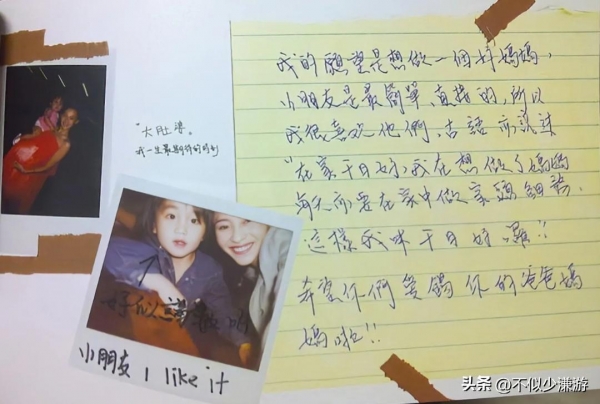 "大肚婆。
我一生最期待的時刻
好似
小朋友 I like it
我的願望是想做一個好媽媽,
小朋友是最簡單、直接的,所以
我很喜欢他們,古語亦說
"在家千日好",我在想做了媽媽
每天亦要在家中做家頭細務,
這樣我咪千日好囉!!
希望你們愛錫你的爸爸媽
媽啦!!
头条 @不似少谦游